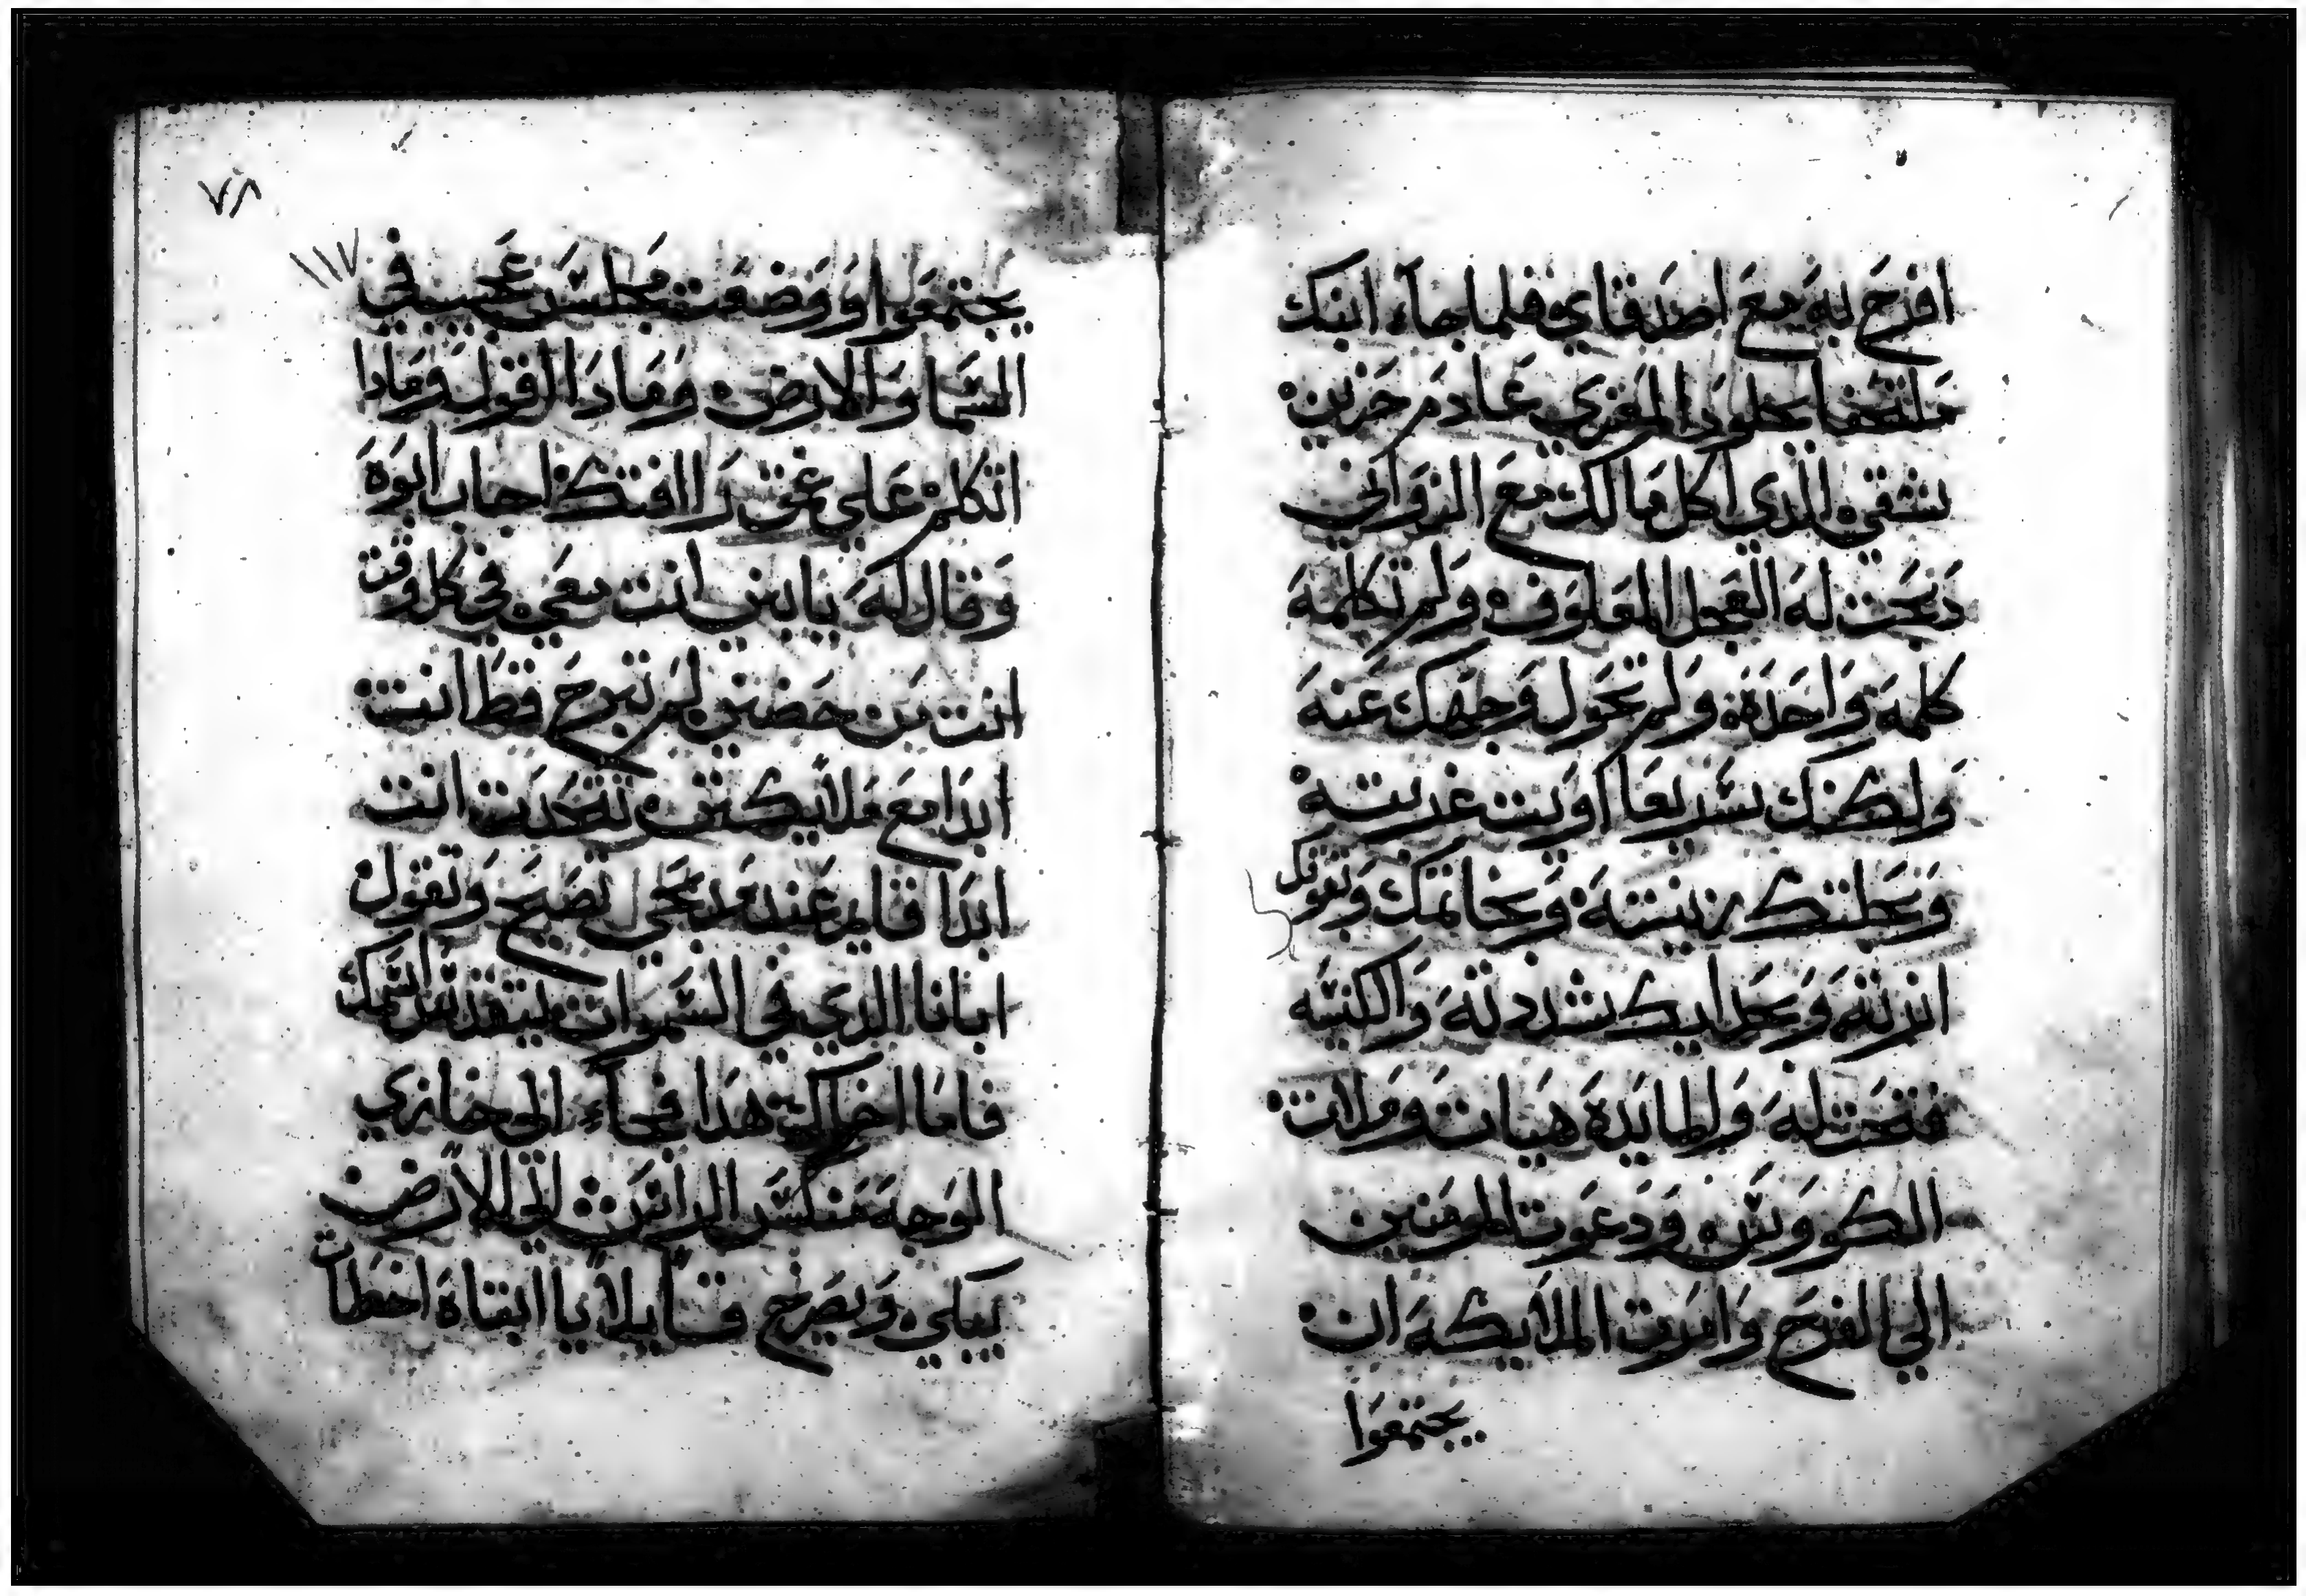 افرح به مع اصدقاي فلما جاء ابنك
ملتحفا بجلود المعزي عادم حزين
شقي الذي اكل مالك مع الزواني
دبحت له العجل المعلوف ولم تكلمه
كلمه واحدة ولم تحول وجهك عنه
ولكنك سريعا اويت غربته
وبحلتك زينته وبخاتمك
انرته وبحدايك شددته والكنيسه
فتحت له والمايدة هيات وملات
الكووس ودعوت المومنين
الي الفرح وامرت الملايكه ان
يجتمعوا
٧٨
١١٧
يجتمعوا ووضعت مجلس عجيب في
السما والارض ومادا اقول ومادا
اتكلم علي افتكر اجاب ابوة
وقال له يابني انت معي في كل وقت
انت من حضني لم تبرح قط انت
ابدا مع ملايكتي تتحدت انت
ابدا قايم عند مدبحي تصيح وتقول
ابانا الدي في السموات ليتقدس اسمك
فاما اخاك هدا فجاء الي خازي
الوجه منكس الراس الي الارض
يبكي ويصرخ قايلا يا ابتاه اخطات